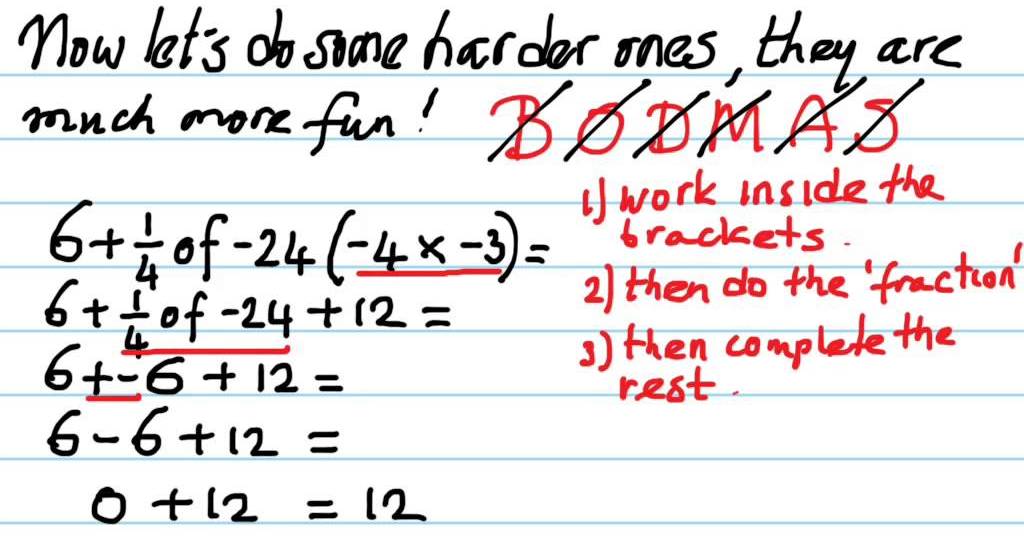 Now let's do some harder ones, they are
much more fun! BODMAS
6+1/4 of -24(-4 x -3)=
6+1/4 of -24+12=
6+-6+12=
6-6+12=
0+12=12
1) work inside the
brackets.
2) then do the 'fraction'
3) then complete the
rest.